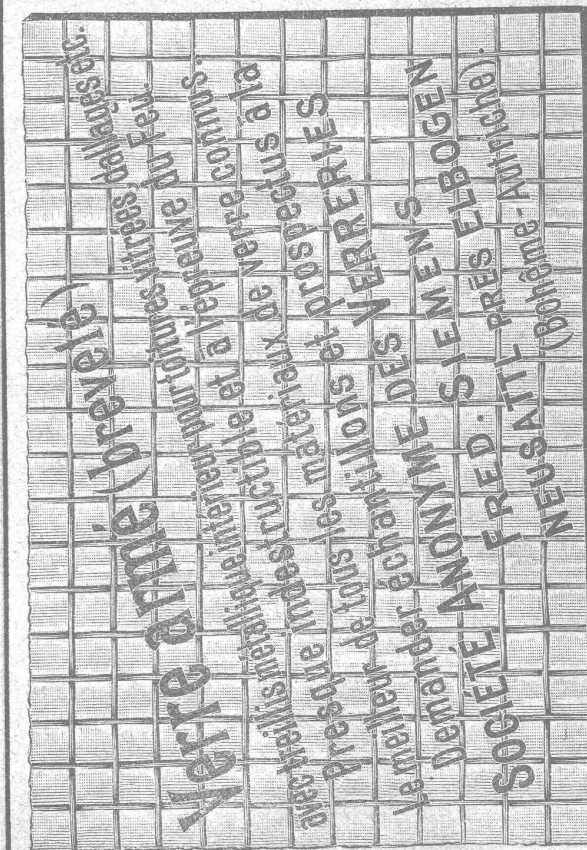 Verre armé (breveté)
avec treillis métallique intérieur pour toitures vitrées, dallages etc.
presque indestructible et à l'épreuve du Feu.
Le meilleur de tous les matériaux de verre connus.
Demander échantillons et prospectus à la
SOCIÉTÉ ANONYME DES VERRERIES
FRED. SIEMENS
NEUSATTL PRÈS ELBOGEN
(Bohême-Autriche).